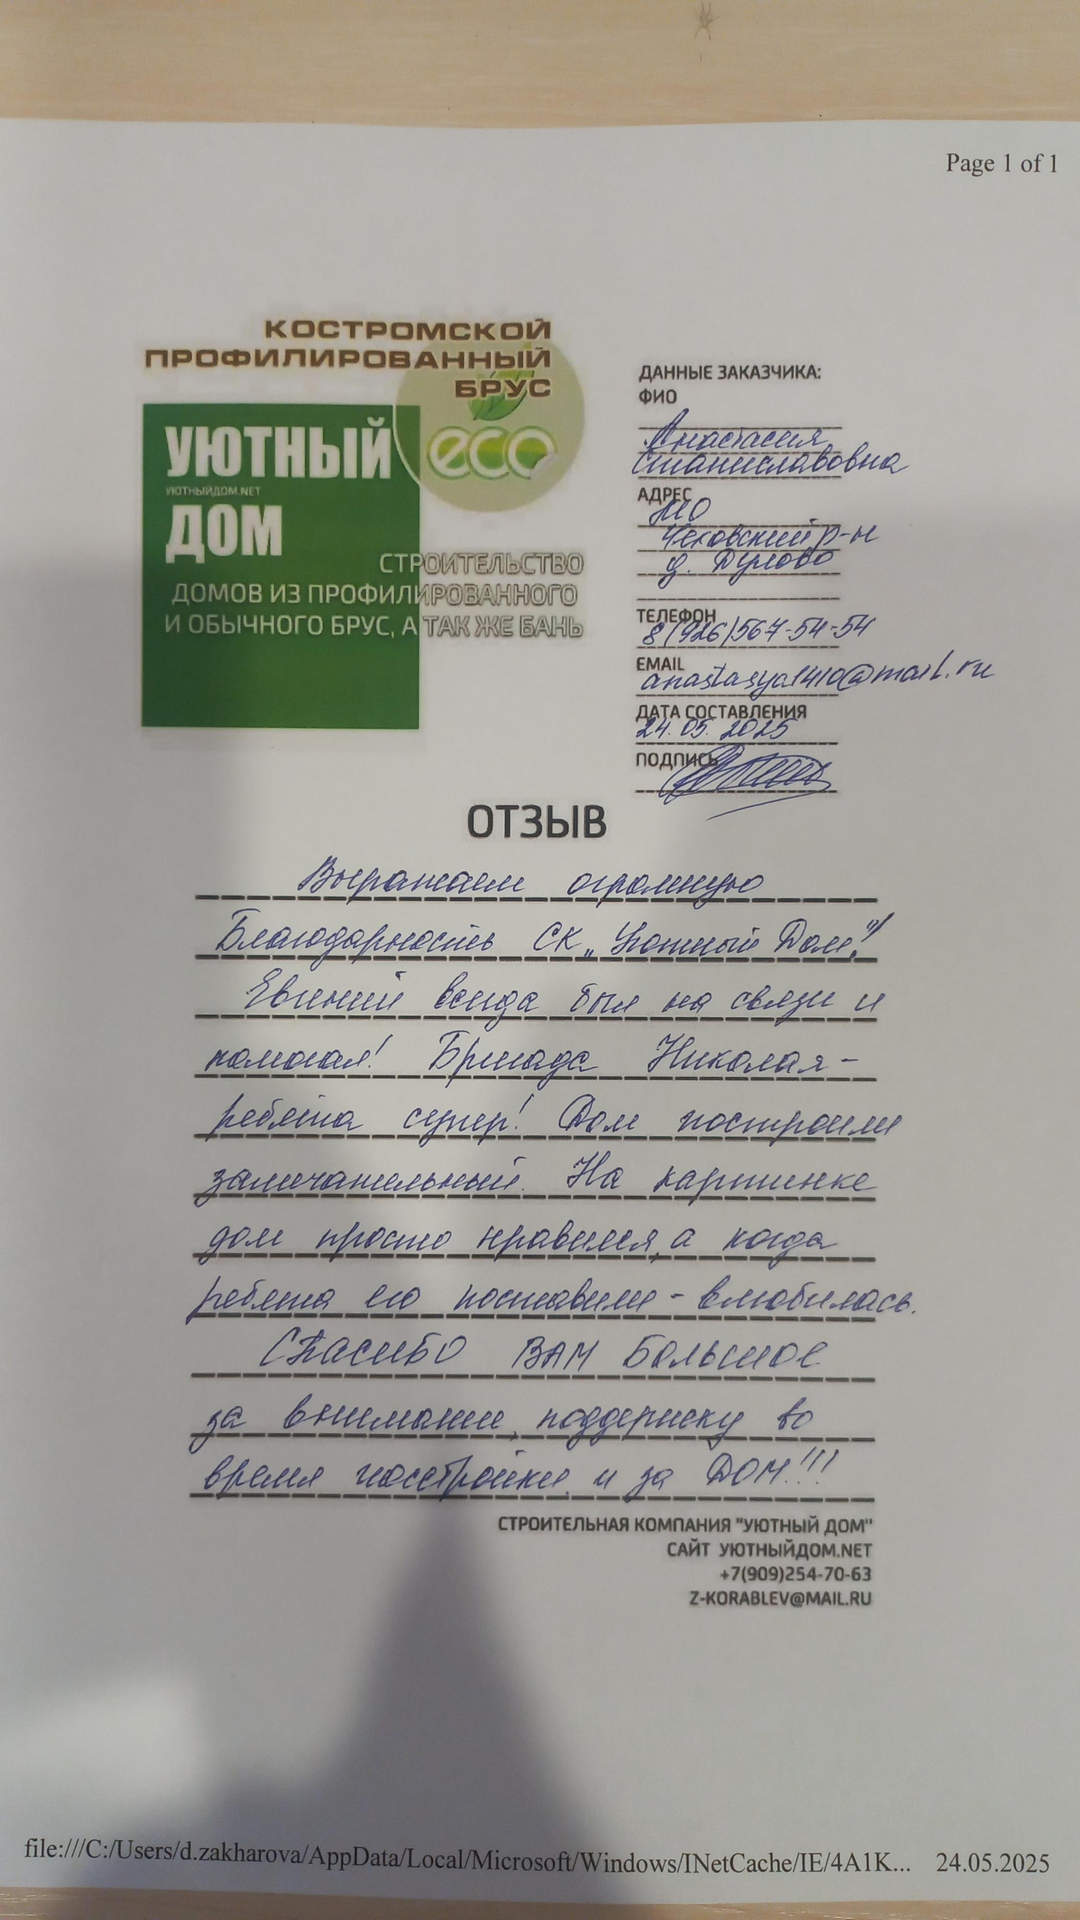 Page 1 of 1
КОСТРОМСКОЙ
ПРОФИЛИРОВАННЫЙ
БРУС
eco
УЮТНЫЙ
УЮТНЫЙДОМ.NET
ДОМ
СТРОИТЕЛЬСТВО
ДОМОВ ИЗ ПРОФИЛИРОВАННОГО
И ОБЫЧНОГО БРУС, А ТАК ЖЕ БАНЬ
ДАННЫЕ ЗАКАЗЧИКА:
ФИО
Анастасия
Станиславовна
АДРЕС
МО
Чеховский р-н
д. Дулово
ТЕЛЕФОН
8(926)567-54-54
EMAIL
anastasya1410@mail.ru
ДАТА СОСТАВЛЕНИЯ
24.05.2025
ПОДПИСЬ
ОТЗЫВ
Выражаем огромную
Благодарность СК „Уютный Дом!"
Евгений всегда был на связи и
помогал! Бригада Николая -
ребята супер! Дом построили
замечательный. На картинке
дом просто нравился, а когда
ребята его поставили - влюбилась.
СПасибо ВАМ Большое
за внимание, поддержку во
время постройки и за ДОМ!!!
СТРОИТЕЛЬНАЯ КОМПАНИЯ "УЮТНЫЙ ДОМ"
САЙТ УЮТНЫЙДОМ.NET
+7(909)254-70-63
Z-KORABLEV@MAIL.RU
file:///C:/Users/d.zakharova/AppData/Local/Microsoft/Windows/INetCache/IE/4A1K... 24.05.2025